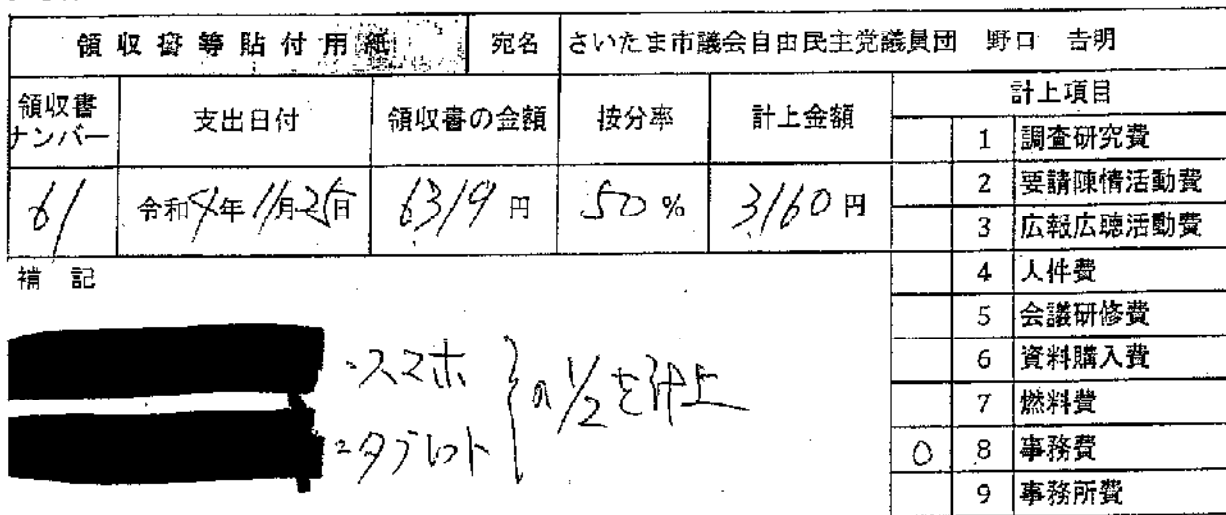 領収書等貼付用紙 宛名 さいたま市議会自由民主党議員団 野口 吉明
領収書ナンバー 支出日付 領収書の金額 按分率 計上金額 計上項目
61 令和4年11月25日 6319円 50% 3160円
1 調査研究費
2 要請陳情活動費
3 広報広聴活動費
4 人件費
5 会議研修費
6 資料購入費
7 燃料費
○ 8 事務費
9 事務所費
補 記
・スマホ
=タブレット
の1/2を計上